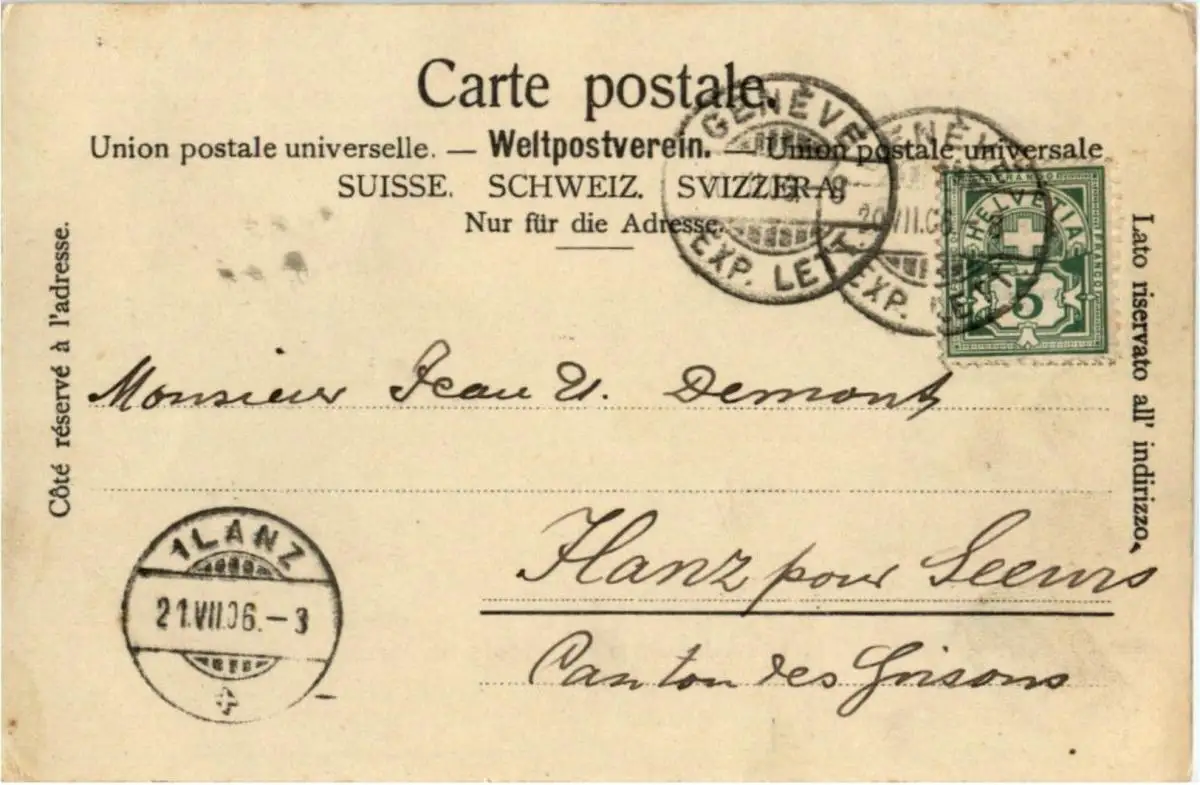 Carte postale.
Union postale universelle. — Weltpostverein. — Union postale universale
SUISSE. SCHWEIZ. SVIZZERA.
Nur für die Adresse.
Côté réservé à l'adresse.
Lato riservato all' indirizzo.
GENÈVE
EXP. LETT.
GENÈVE
20.VII.06.
EXP. LETT.
HELVETIA
FRANCO
5
Monsieur Jean U. Demont
Ilanz pour Seewis
Canton des Grisons
ILANZ
21.VII.06.-3